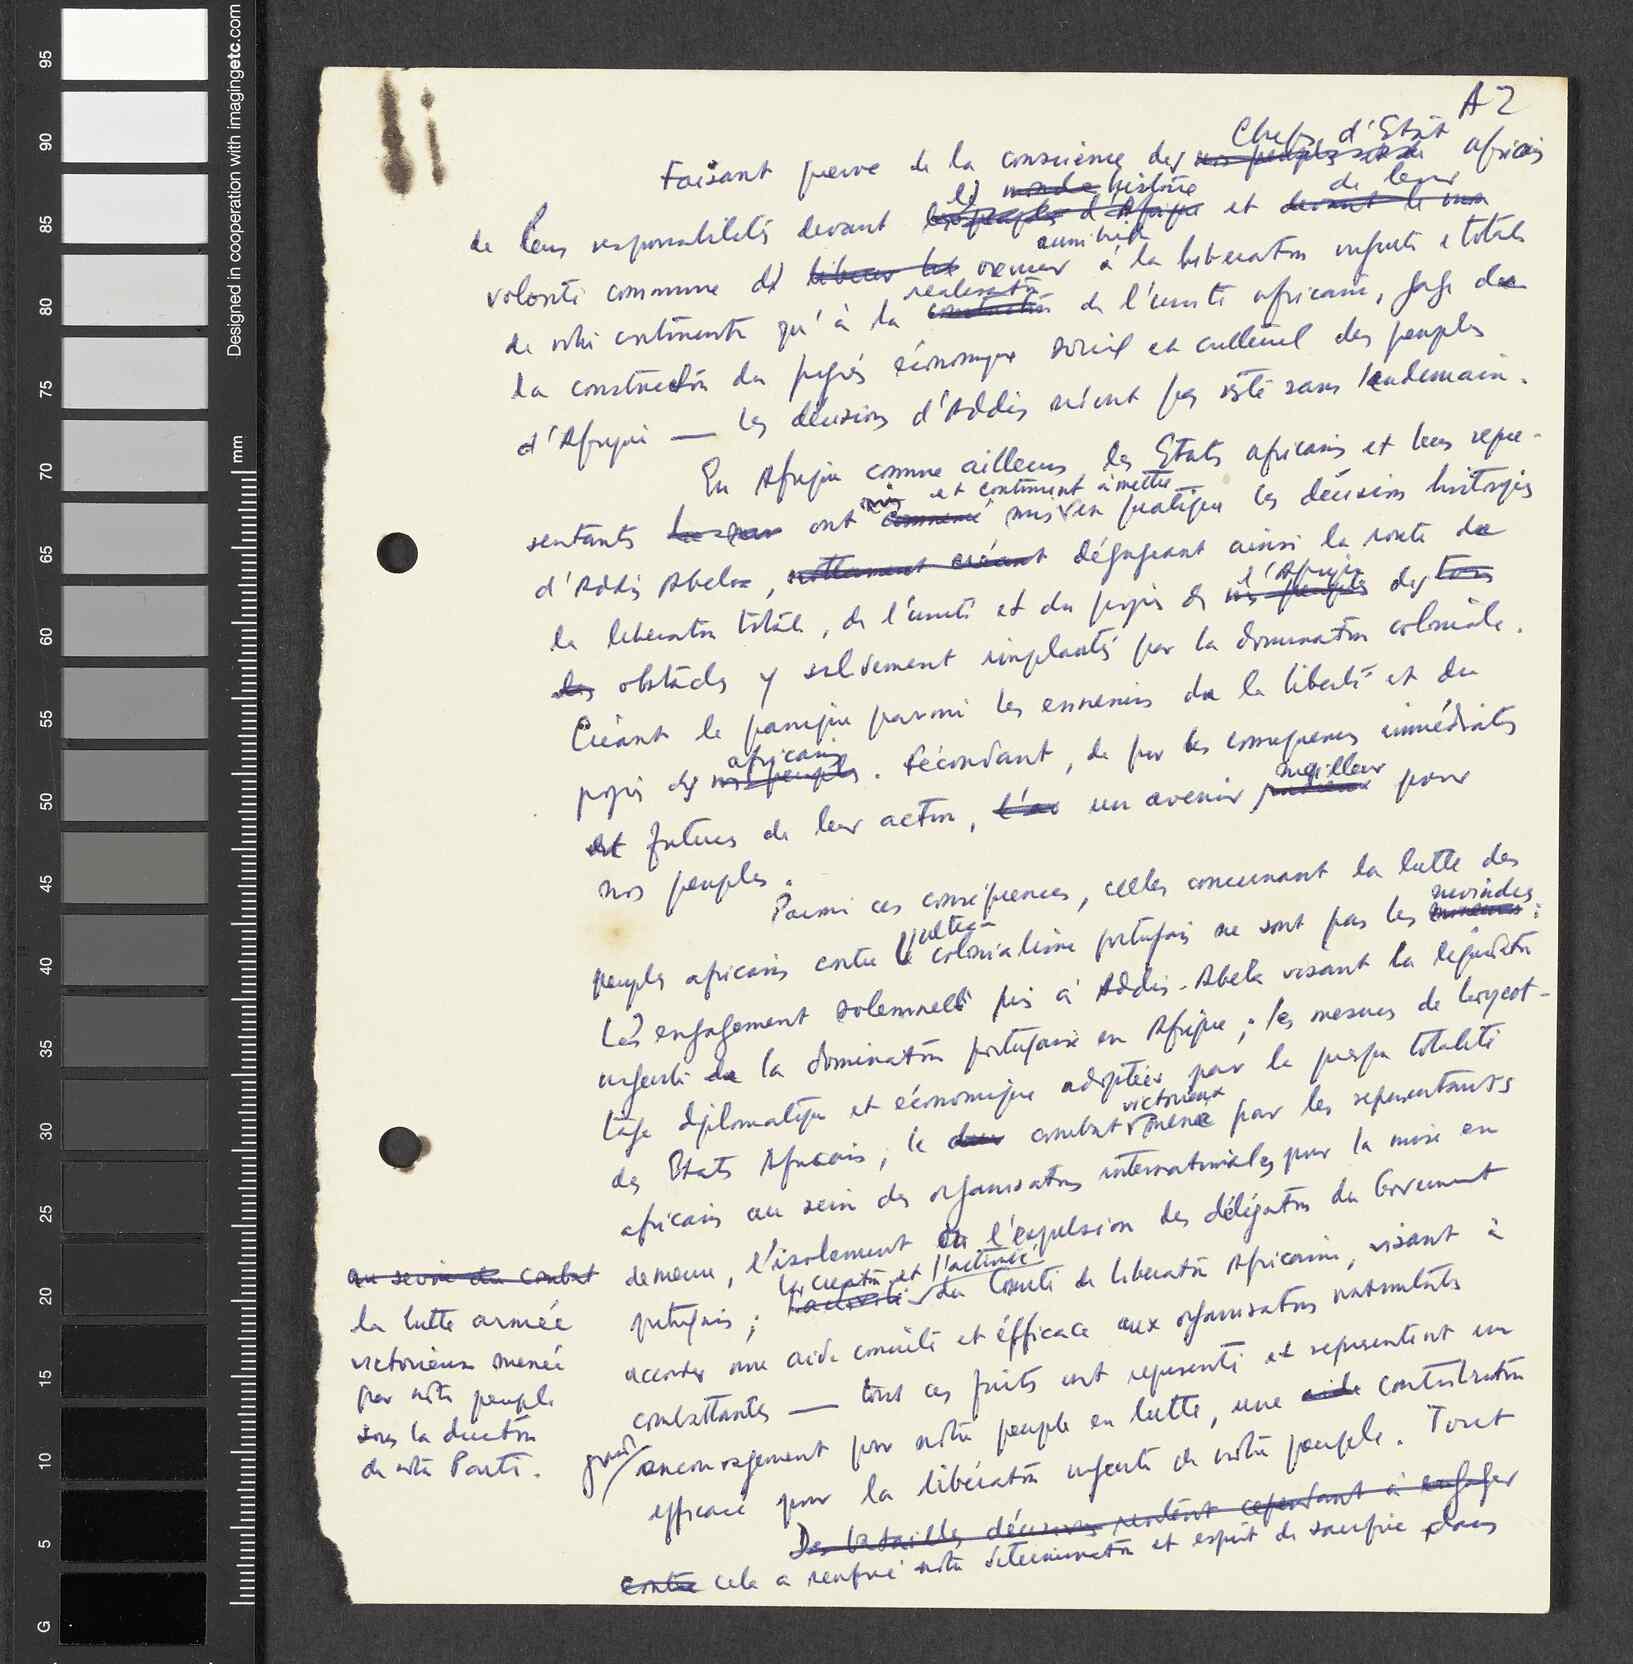 A 2
Chefs d'Etat
Faisant preuve de la conscience des nos peuples africains
le monde histoire de leur
de leurs responsabilités devant les peuples d'Afrique et devant le
aussi bien
volonté commune de libérer les oeuvrer à la libération urgente et totale
réalisation
de notre continent qu'à la construction de l'unité africaine, gage de
la construction du progrès économique social et culturel des peuples
d'Afrique — les décisions d'Addis n'ont pas resté sans lendemain.
En Afrique comme ailleurs, les Etats africains et leurs repré-
mis et continuent à mettre
sentants ont commencé mis en pratique les décisions historiques
d'Addis Abeba, notamment créant dégageant ainsi la route de
l'Afrique
la libération totale, de l'unité et du progrès de nos peuples des tous
les obstacles y solidement implantés par la domination coloniale.
Créant la panique parmi les ennemis de la liberté et du
africains
progrès des nos peuples. Fécondant, de par les conséquences immédiates
meilleur
et futures de leur action, un avenir pour
nos peuples.
Parmi ces conséquences, celles concernant la lutte des
moindres
peuples africains contre le colonialisme portugais ne sont pas les mineures:
Les engagement solennels pris à Addis-Abeba visant la liquidation
urgente de la domination portugaise en Afrique; les mesures de boycot-
tage diplomatique et économique adoptées par la presque totalité
victorieux
des Etats Africains; le dur combat mené par les représentants
africains au sein des organisations internationales pour la mise en
demeure, l'isolement ou l'expulsion des délégations du Gouvernement
la création et l'activité
portugais; l'activité du Comité de libération Africaine, visant à
accorder une aide concrète et efficace aux organisations nationalistes
combattantes — tout ces faits ont représenté et représentent un
grand
encouragement pour notre peuple en lutte, une aide contribution
efficace pour la libération urgente de notre peuple. Tout
Des batailles décisives restent cependant à engager
contre cela a renforcé notre détermination et esprit de sacrifice dans
au service du combat
la lutte armée
victorieuse menée
par notre peuple
sous la direction
de notre Parti.
Designed in cooperation with imagingetc.com
mm
95
90
85
80
75
70
65
60
55
50
45
40
35
30
25
20
15
10
5
G